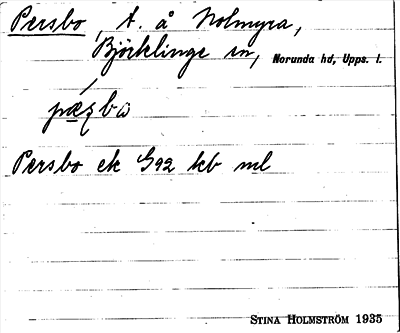 Persbo, t. å Nolmyra,
Björklinge sn, Norunda hd, Upps. l.
pæʂbω
Persbo ek G92 kb ml
STINA HOLMSTRÖM 1935